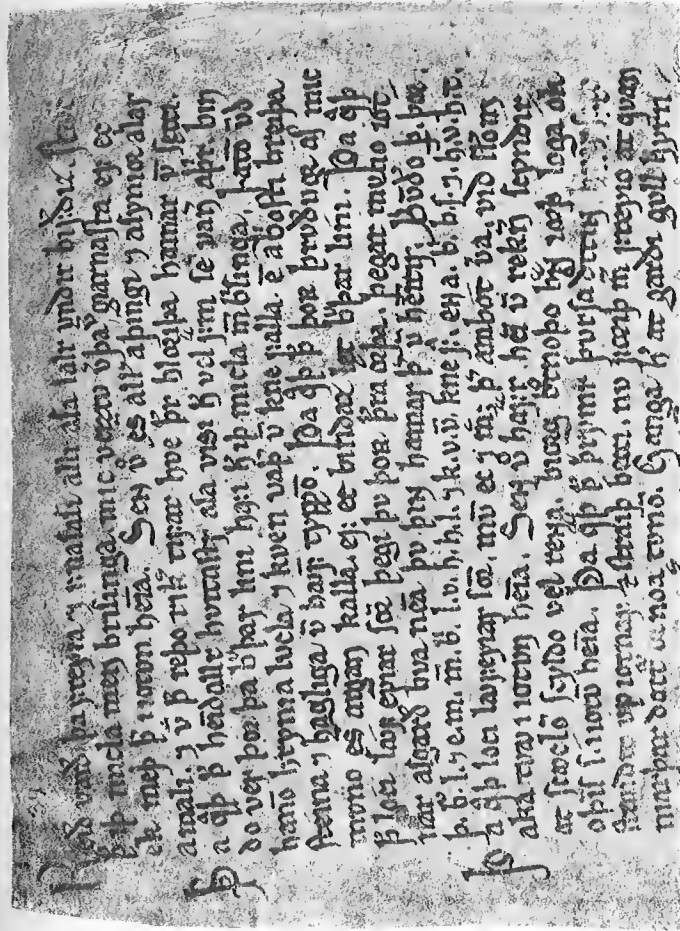 Reið varð þa freyia ⁊ fnasaþi allr asa salr vndir bifðiz.
þ iþ micla men brisinga. mic veiztu v̄þa giarnasta ef ec
ek meþ þ̄ i iotvn heīa. Senn v̄ es allr a þingi ⁊ asynior alar
a mali. ⁊ v̄ þ reþo rikir tifar hve þr hloriþa hamar v̄ setti.
þa q̄þ þ heīdallr hvitastr asa vissi h̄ vel fram sē vanir aþrir. bin
do ver þor þa bþar lini hafi h̄ iþ micla m̄ brisinga. latō vnd
hanō hrynia lucla ⁊ kven vaþir v̄ kne falla. en̄ a brosti breiþa
steina ⁊ hagliga v̄ hafuþ typpō. Þa q̄þ þ þor þrvdugr as mic
mvno es argan kalla. ef ec bindaz let bþar lini. Þa q̄þ
þ loci laufeyiar sō þegi þu þor þra orþa. þegar muno iot
nar asgarð bua nēa þu þiɴ hamar þ v̄ heītir. Bvndo þ þor.
þa. b̄. l. ⁊ e. m. m̄. b̄. l. v. h. h. l. ⁊ k. v. v̄. kne f. en a. b. b. s. ⁊. h. v. h. t.
Þa q̄þ loci laufeyiar sō. mū ec ⁊ m; þ̄ ambot v̄a. við scolom
aka tvav i iotun heīa. Senn v̄ hafrar heī v̄ reknir scyndir
at scoclō scyldo vel renna. biorg brotnoþo iorþ loga ok
oþins s. i iotū heīa. Þa q̄þ þ þrymr þursa
standit up iotnar ⁊ straiþ becci. nv foriþ m̄ freyio at quan
niarþar dottur or noa tunō. Ganga h̄ at garði gull hyrn